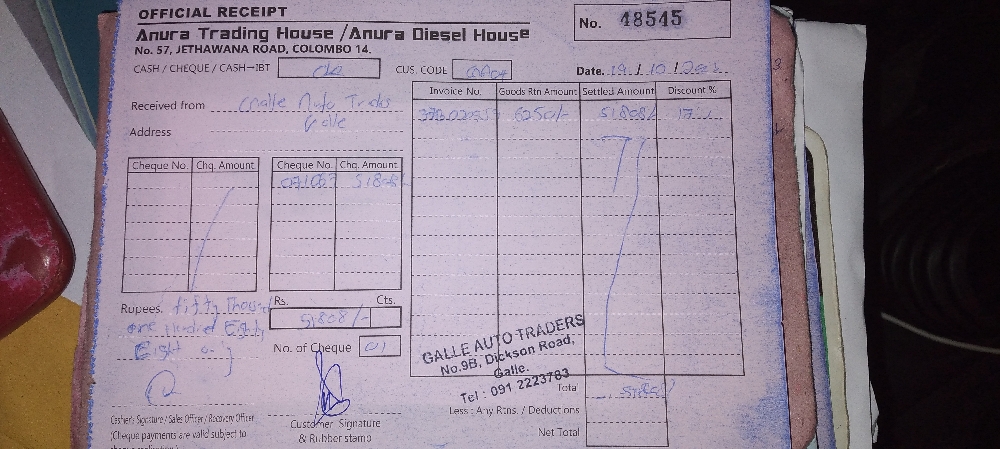 OFFICIAL RECEIPT
No. 48545
Anura Trading House /Anura Diesel House
No. 57, JETHAWANA ROAD, COLOMBO 14.
CASH / CHEQUE / CASH-IBT
CUS. CODE
Date. 19 / 10 /
Received from Galle Auto
Address Galle
Invoice No. Goods Rtn Amount Settled Amount Discount %
6250/-
Cheque No. Chq. Amount Cheque No. Chq. Amount
Rupees. fifty Thousand
one Hundred Eighty
Eight
Rs. Cts.
No. of Cheque 01
GALLE AUTO TRADERS
No.9B, Dickson Road,
Galle.
Tel : 091 2223783
Total
Less : Any Rtns. / Deductions
Net Total
Cashier's Signature / Sales Officer / Recovery Officer
(Cheque payments are valid subject to
Customer Signature
& Rubber stamp